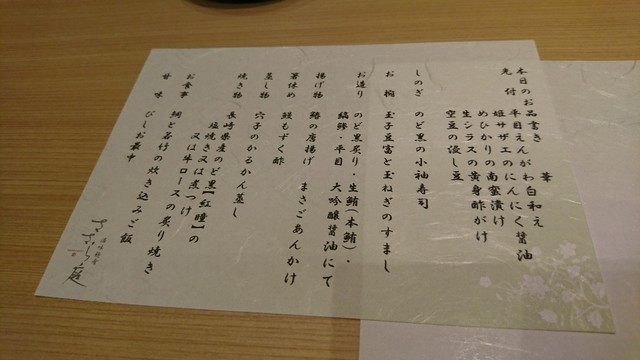 本日のお品書き　華
先付　平目えんがわ白和え
姫サザエのにんにく醤油
めひかりの南蛮漬け
生シラスの黄身酢がけ
空豆の浸し豆
しのぎ　のど黒の小袖寿司
お椀　玉子豆富と玉ねぎのすまし
お造り　のど黒炙り・生鮪(本鮪)・
縞鯵・平目　大吟醸醤油にて
揚げ物　鰆の唐揚げ　まさごあんかけ
箸休め　鰻もずく酢
蒸し物　穴子のかるかん蒸し
焼き物　長崎県産のど黒【紅瞳】の
塩焼き又は煮つけ
又は牛ロースの炙り焼き
お食事　鯛と若竹の炊き込みご飯
甘味　びしお最中